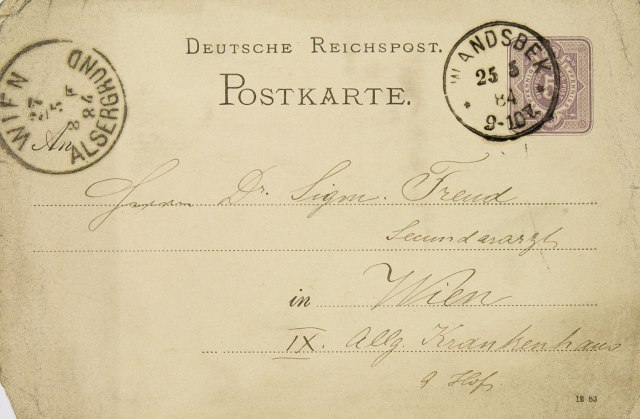 DEUTSCHE REICHSPOST.
POSTKARTE.
WANDSBEK
25 5
84
9-10V.
WIEN
ALSERGRUND
27
5
84
8 F
An
Herrn Dr. Sigm. Freud
Secundararzt
in Wien
IX. Allg. Krankenhaus
9 Hof
12 83